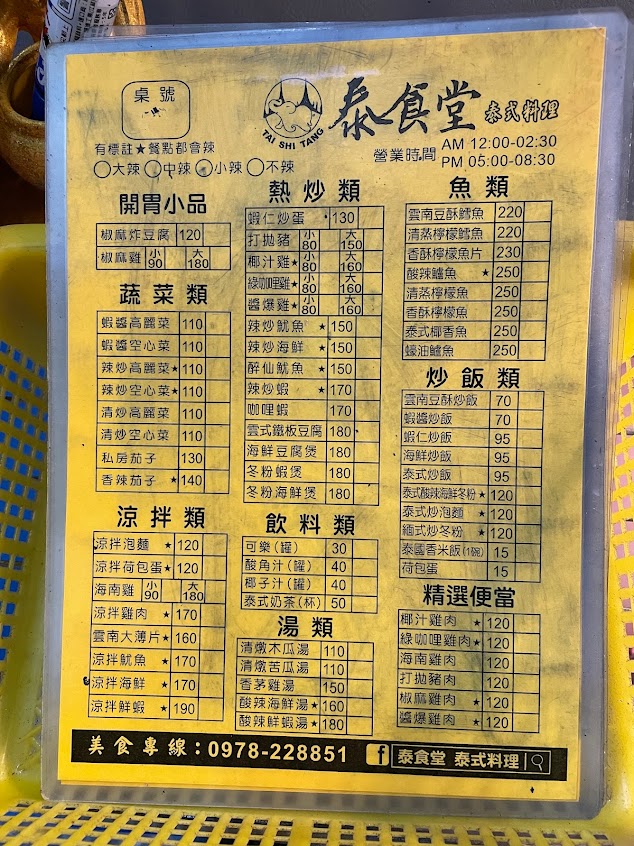 桌號
TAI SHI TANG
泰食堂 泰式料理
有標註★餐點都會辣
大辣 中辣 小辣 不辣
營業時間 AM 12:00-02:30
PM 05:00-08:30
開胃小品
椒麻炸豆腐 120
椒麻雞 小90 大180
蔬菜類
蝦醬高麗菜 110
蝦醬空心菜 110
辣炒高麗菜★ 110
辣炒空心菜★ 110
清炒高麗菜 110
清炒空心菜 110
私房茄子 130
香辣茄子★ 140
涼拌類
涼拌泡麵★ 120
涼拌荷包蛋★ 120
海南雞 小90 大180
涼拌雞肉★ 170
雲南大薄片★ 160
涼拌魷魚★ 170
涼拌海鮮★ 170
涼拌鮮蝦★ 190
熱炒類
蝦仁炒蛋 130
打拋豬 小80 大150
椰汁雞★ 小80 大160
綠咖哩雞★ 小80 大160
醬爆雞★ 小80 大160
辣炒魷魚★ 150
辣炒海鮮★ 150
醉仙魷魚★ 150
辣炒蝦★ 170
咖哩蝦 170
雲式鐵板豆腐 180
海鮮豆腐煲 180
冬粉蝦煲 180
冬粉海鮮煲 180
飲料類
可樂(罐) 30
酸角汁(罐) 40
椰子汁(罐) 40
泰式奶茶(杯) 50
湯類
清燉木瓜湯 110
清燉苦瓜湯 110
香茅雞湯 150
酸辣海鮮湯★ 160
酸辣鮮蝦湯★ 180
魚類
雲南豆酥鱈魚 220
清蒸檸檬鱈魚 220
香酥檸檬魚片 230
酸辣鱸魚★ 250
清蒸檸檬魚 250
香酥檸檬魚 250
泰式椰香魚 250
蠔油鱸魚 250
炒飯類
雲南豆酥炒飯 70
蝦醬炒飯 70
蝦仁炒飯 95
海鮮炒飯 95
泰式炒飯 95
泰式酸辣海鮮冬粉★ 120
泰式炒泡麵★ 120
緬式炒冬粉★ 120
泰國香米飯(1碗) 15
荷包蛋 15
精選便當
椰汁雞肉★ 120
綠咖哩雞肉★ 120
海南雞肉 120
打拋豬肉 120
椒麻雞肉★ 120
醬爆雞肉★ 120
美食專線：0978-228851 f 泰食堂 泰式料理